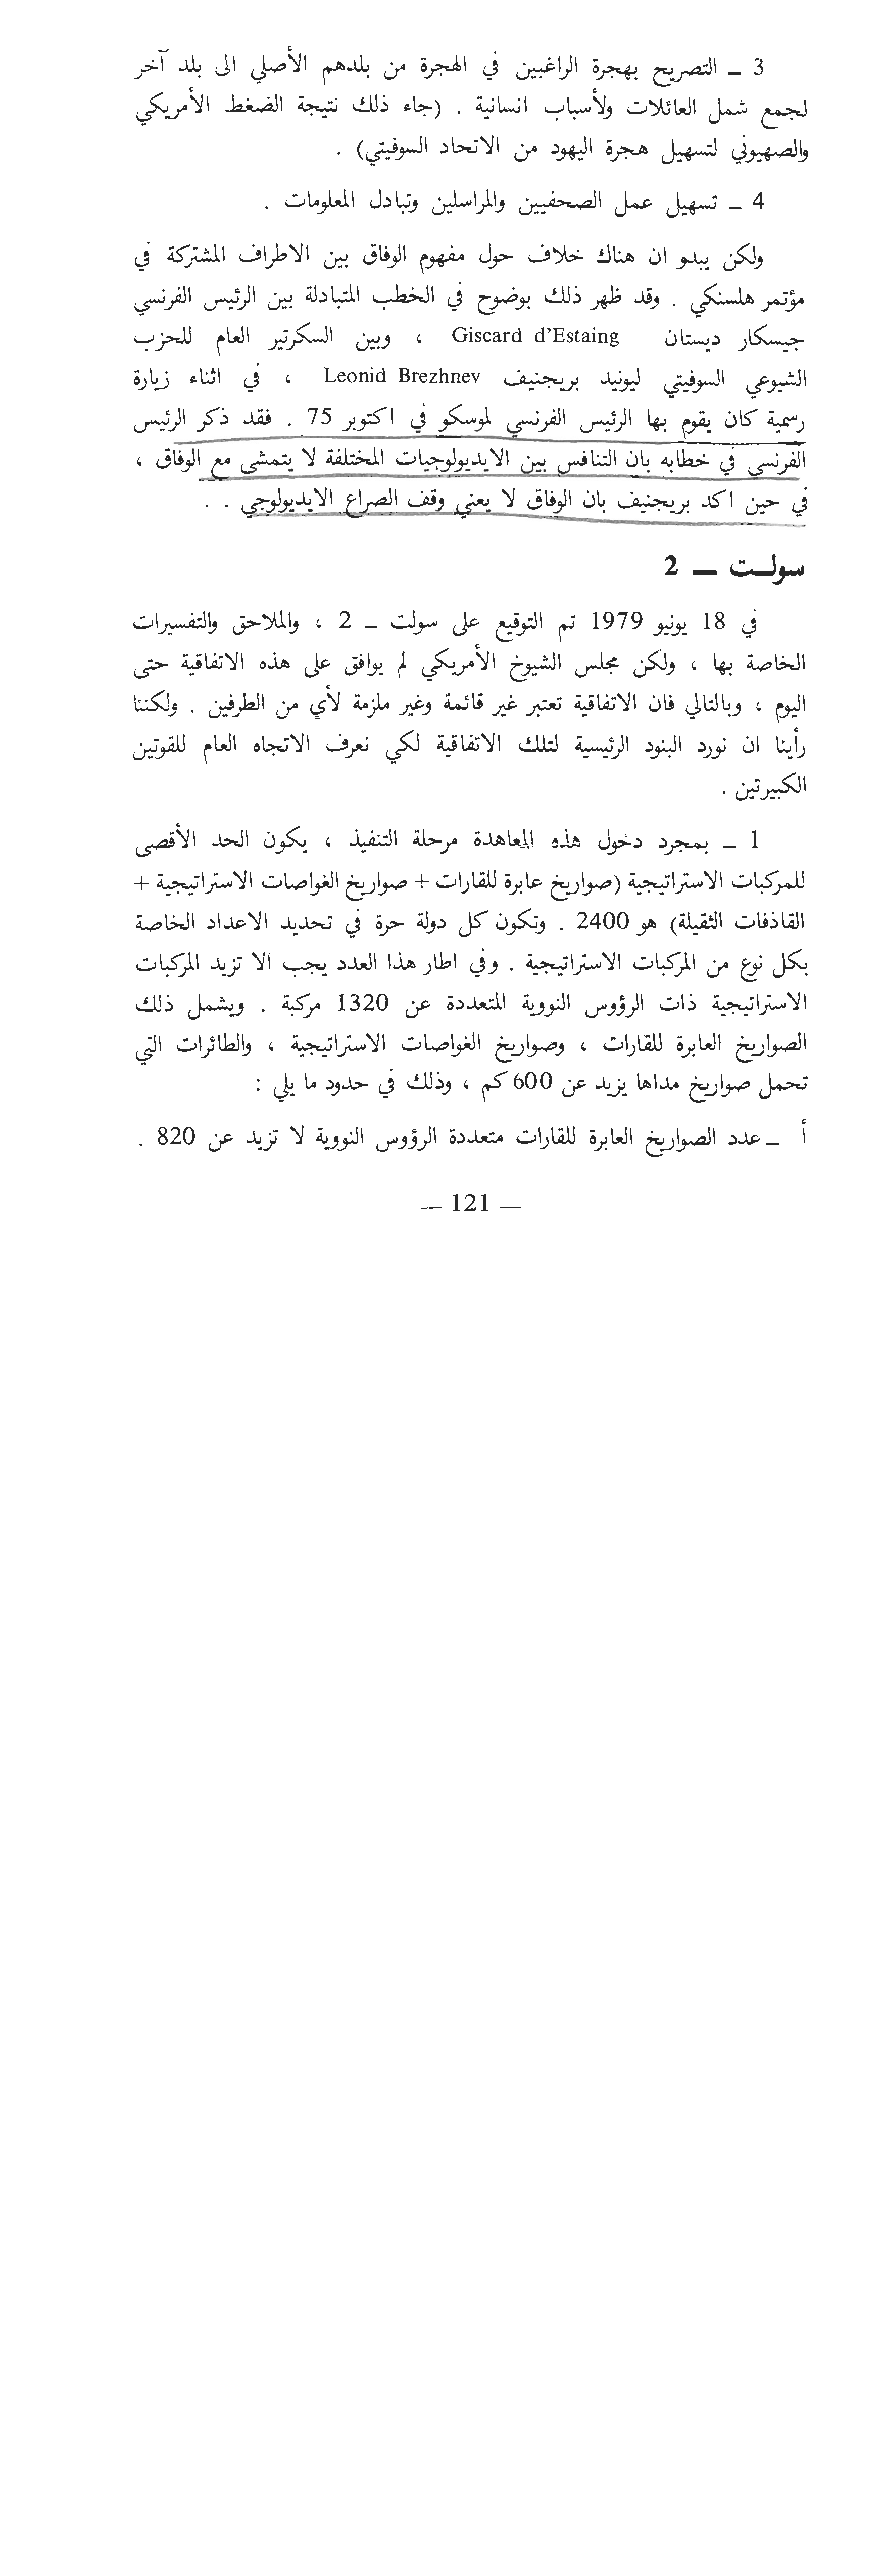 3 ــ التصريح بهجرة الراغبين في الهجرة من بلدهم الأصلي الى بلد آخر
لجمع شمل العائلات ولأسباب انسانية . (جاء ذلك نتيجة الضغط الأمريكي
والصهيوني لتسهيل هجرة اليهود من الاتحاد السوفيتي) .
4 ــ تسهيل عمل الصحفيين والمراسلين وتبادل المعلومات .
ولكن يبدو ان هناك خلاف حول مفهوم الوفاق بين الاطراف المشتركة في
مؤتمر هلسنكي . وقد ظهر ذلك بوضوح في الخطب المتبادلة بين الرئيس الفرنسي
جيسكار ديستان Giscard d'Estaing ، وبين السكرتير العام للحزب
الشيوعي السوفيتي ليونيد بريجنيف Leonid Brezhnev ، في اثناء زيارة
رسمية كان يقوم بها الرئيس الفرنسي لموسكو في اكتوبر 75 . فقد ذكر الرئيس
الفرنسي في خطابه بان التنافس بين الايديولوجيات المختلفة لا يتمشى مع الوفاق ،
في حين اكد بريجنيف بان الوفاق لا يعني وقف الصراع الايديولوجي . .
سولــت ــ 2
في 18 يونيو 1979 تم التوقيع على سولت ــ 2 ، والملاحق والتفسيرات
الخاصة بها ، ولكن مجلس الشيوخ الأمريكي لم يوافق على هذه الاتفاقية حتى
اليوم ، وبالتالي فان الاتفاقية تعتبر غير قائمة وغير ملزمة لأي من الطرفين . ولكننا
رأينا ان نورد البنود الرئيسية لتلك الاتفاقية لكي نعرف الاتجاه العام للقوتين
الكبيرتين .
1 ــ بمجرد دخول هذه المعاهدة مرحلة التنفيذ ، يكون الحد الأقصى
للمركبات الاستراتيجية (صواريخ عابرة للقارات + صواريخ الغواصات الاستراتيجية +
القاذفات الثقيلة) هو 2400 . وتكون كل دولة حرة في تحديد الاعداد الخاصة
بكل نوع من المركبات الاستراتيجية . وفي اطار هذا العدد يجب الا تزيد المركبات
الاستراتيجية ذات الرؤوس النووية المتعددة عن 1320 مركبة . ويشمل ذلك
الصواريخ العابرة للقارات ، وصواريخ الغواصات الاستراتيجية ، والطائرات التي
تحمل صواريخ مداها يزيد عن 600 كم ، وذلك في حدود ما يلي :
أ ــ عدد الصواريخ العابرة للقارات متعددة الرؤوس النووية لا تزيد عن 820 .
— 121 —